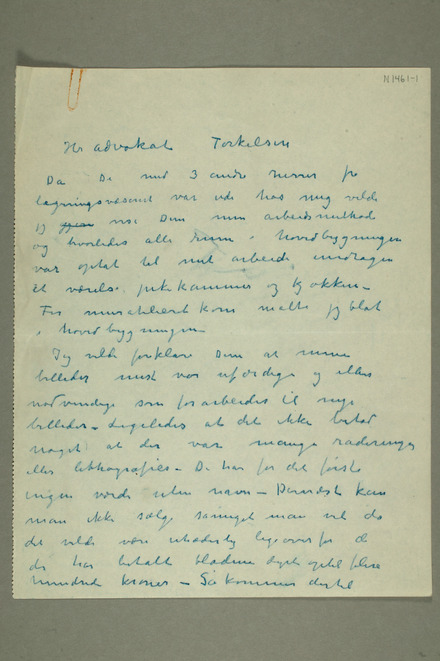 N 1461-1
Hr advokat Torkelsen
Da De med 3 andre herrer fra
lagningsvæsenet var ude hos mig vilde
jeg vise Dem min arbeidsmethode
og hvorledes alle rum i hovedbygningen
var optat til mit arbeide undtagen
et værelse pikekammer og kjøkken –
Før muratelieret kom malte jeg blot
i hovedbygningen
Jeg vilde forklare Dem at mine
billeder mest var uferdige og ellers
nødvendige som forarbeider til nye
billeder – Ligeledes at det ikke betød
noget at der var mange raderinger
eller lithografier – De har for det første
ingen værdi uten navn – Dernæst kan
man ikke sælge saameget man vil da
det vilde være uhæderlig ligeoverfor de
der har betalt bladene dyrt optil flere
hundrede kroner – Så kommer dertil